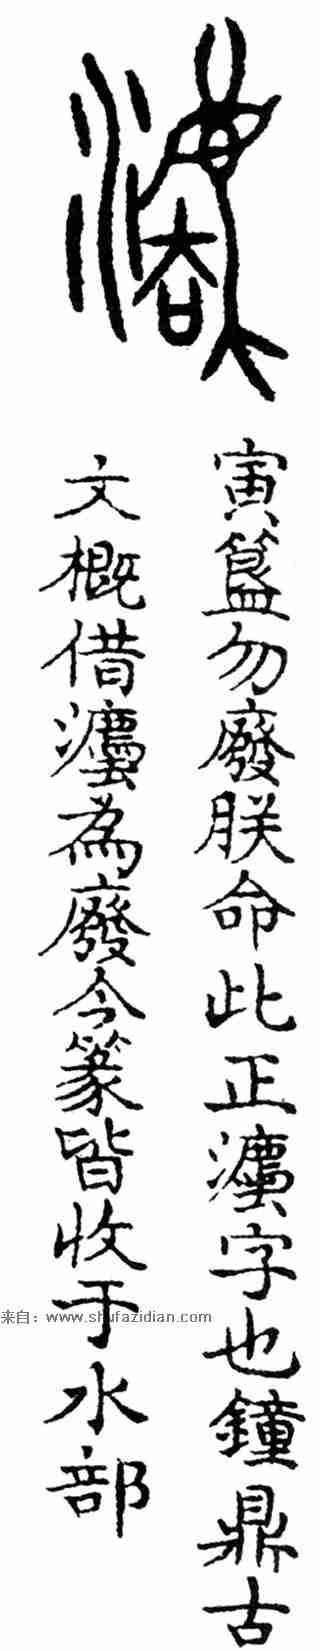 灋
寅簋勿廢朕命此正灋字也鐘鼎古
文概借灋為廢今篆皆收于水部
来自：www.shufazidian.com